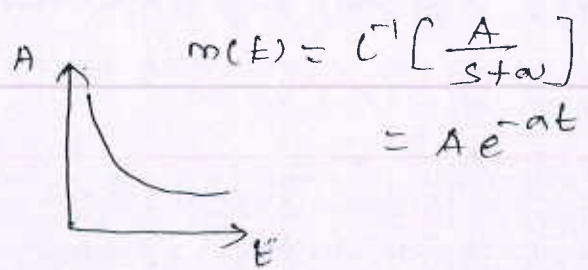 A
m(t) = L⁻¹ [ A / s+a ]
= A e^-at
t